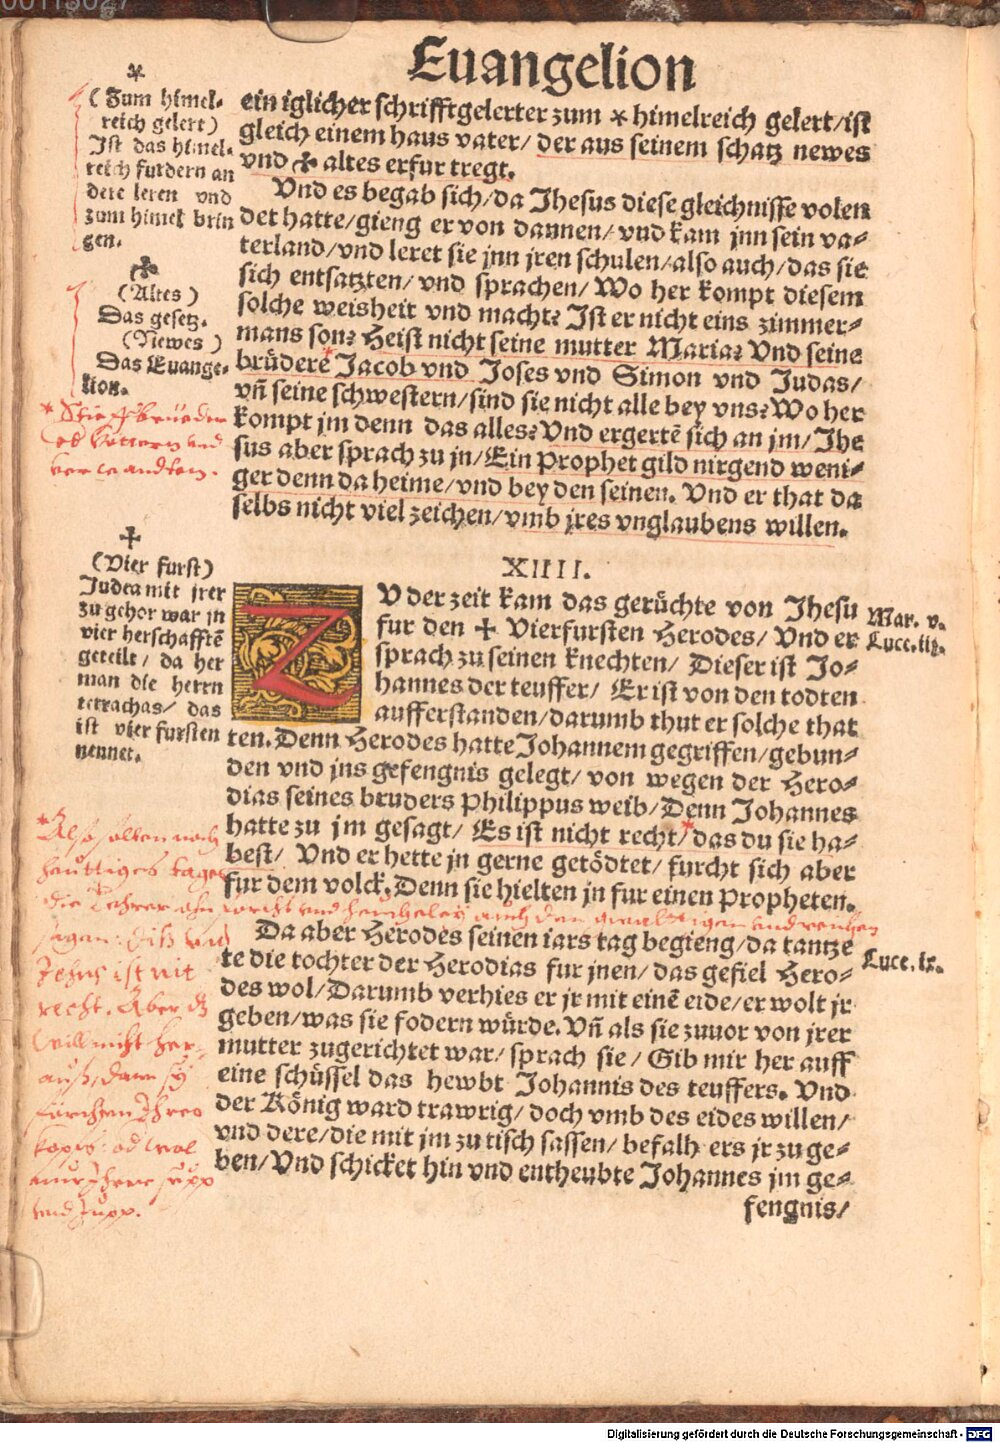 00113027
Euangelion
(Zum himel-
reich gelert)
Ist das himel-
reich furdern an
dere leren vnd
zum himel brin
gen.
(Altes)
Das gesetz.
(Newes)
Das Euange-
lion.
ein iglicher schrifftgelerter zum * himelreich gelert/ist
gleich einem haus vater/ der aus seinem schatz newes
vnd ✣ altes erfur tregt.
Vnd es begab sich/da Jhesus diese gleichnisse volen
det hatte/gieng er von dannen/vnd kam jnn sein va-
terland/vnd leret sie jnn jren schulen/also auch/das sie
sich entsatzten/ vnd sprachen/ Wo her kompt diesem
solche weisheit vnd macht? Ist er nicht eins zimmer-
mans son? Heist nicht seine mutter Maria? Vnd seine
brüdere* Jacob vnd Joses vnd Simon vnd Judas/
vñ seine schwestern/sind sie nicht alle bey vns? Wo her
kompt jm denn das alles? Vnd ergertẽ sich an jm/ Jhe
sus aber sprach zu jn/Ein Prophet gild nirgend weni-
ger denn da heime/vnd bey den seinen. Vnd er that da
selbs nicht viel zeichen/vmb jres vnglaubens willen.
* Stieffbrueder
vnd
verwandten.
XIIII.
✣
(Vier furst)
Judea mit jrer
zu gehor war jn
vier herschafftẽ
geteilt/ da her
man die herrn
tetrachas/ das
ist vier fursten
nennet.
ZV der zeit kam das gerüchte von Jhesu
fur den ✣ Vierfursten Herodes/ Vnd er
sprach zu seinen knechten/ Dieser ist Jo-
hannes der teuffer/ Er ist von den todten
aufferstanden/darumb thut er solche that
ten. Denn Herodes hatte Johannem gegriffen/gebun-
den vnd jns gefengnis gelegt/ von wegen der Hero-
dias seines bruders Philippus weib/ Denn Johannes
hatte zu jm gesagt/ Es ist nicht recht/* das du sie ha-
best/ Vnd er hette jn gerne getödtet/ furcht sich aber
fur dem volck. Denn sie hielten jn fur einen Propheten.
Mar. v.
Luce. iij.
Also solten noch
heuttiges tages
die Lehrer ohn forcht vnd heucheley auch den gewalttigen vnd reichen
sagen: diß vnd
Jehns ist nit
recht. Aber
will nicht her-
auß, dann sy
fürchten Ihres
kopfs: od wol
nur Ihrer supp
vnd
Da aber Herodes seinen iars tag begieng/da tantze
te die tochter der Herodias fur jnen/das gefiel Hero-
des wol/Darumb verhies er jr mit einẽ eide/er wolt jr
geben/was sie fodern würde. Vñ als sie zuuor von jrer
mutter zugerichtet war/ sprach sie/ Gib mir her auff
eine schüssel das hewbt Johannis des teuffers. Vnd
der König ward trawrig/ doch vmb des eides willen/
vnd dere/die mit jm zu tisch sassen/ befalh ers jr zu ge-
ben/Vnd schicket hin vnd entheubte Johannes jm ge-
fengnis/
Luce. ix.
Digitalisierung gefördert durch die Deutsche Forschungsgemeinschaft - DFG